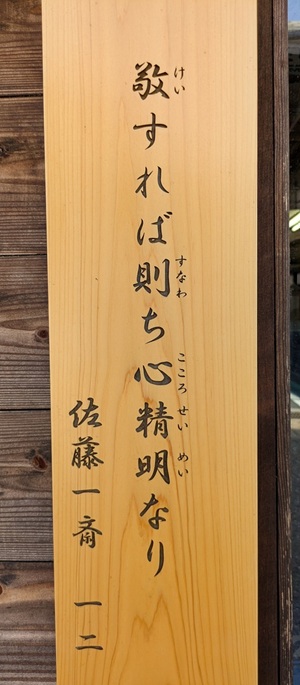 敬すれば則ち心精明なり
けい すなわ こころ せい めい
佐藤一斎 一二